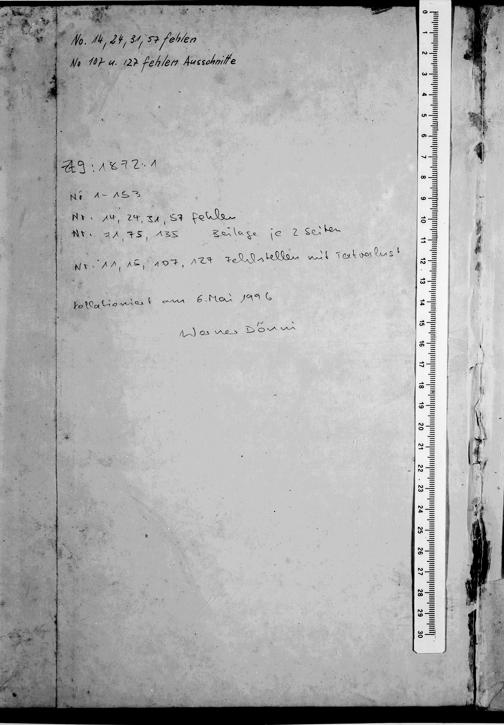 No. 14, 24, 31, 57 fehlen
No 107 u. 127 fehlen Ausschnitte
Zg: 1872.1
Nr 1-153
Nr. 14, 24, 31, 57 fehlen
Nr. 71, 75, 135 Beilage je 2 Seiten
Nr. 11, 15, 107, 127 Fehlstellen mit Textverlust
kollationiert am 6. Mai 1996
Werner Dönni
0
1
2
3
4
5
6
7
8
9
10
11
12
13
14
15
16
17
18
19
20
21
22
23
24
25
26
27
28
29
30